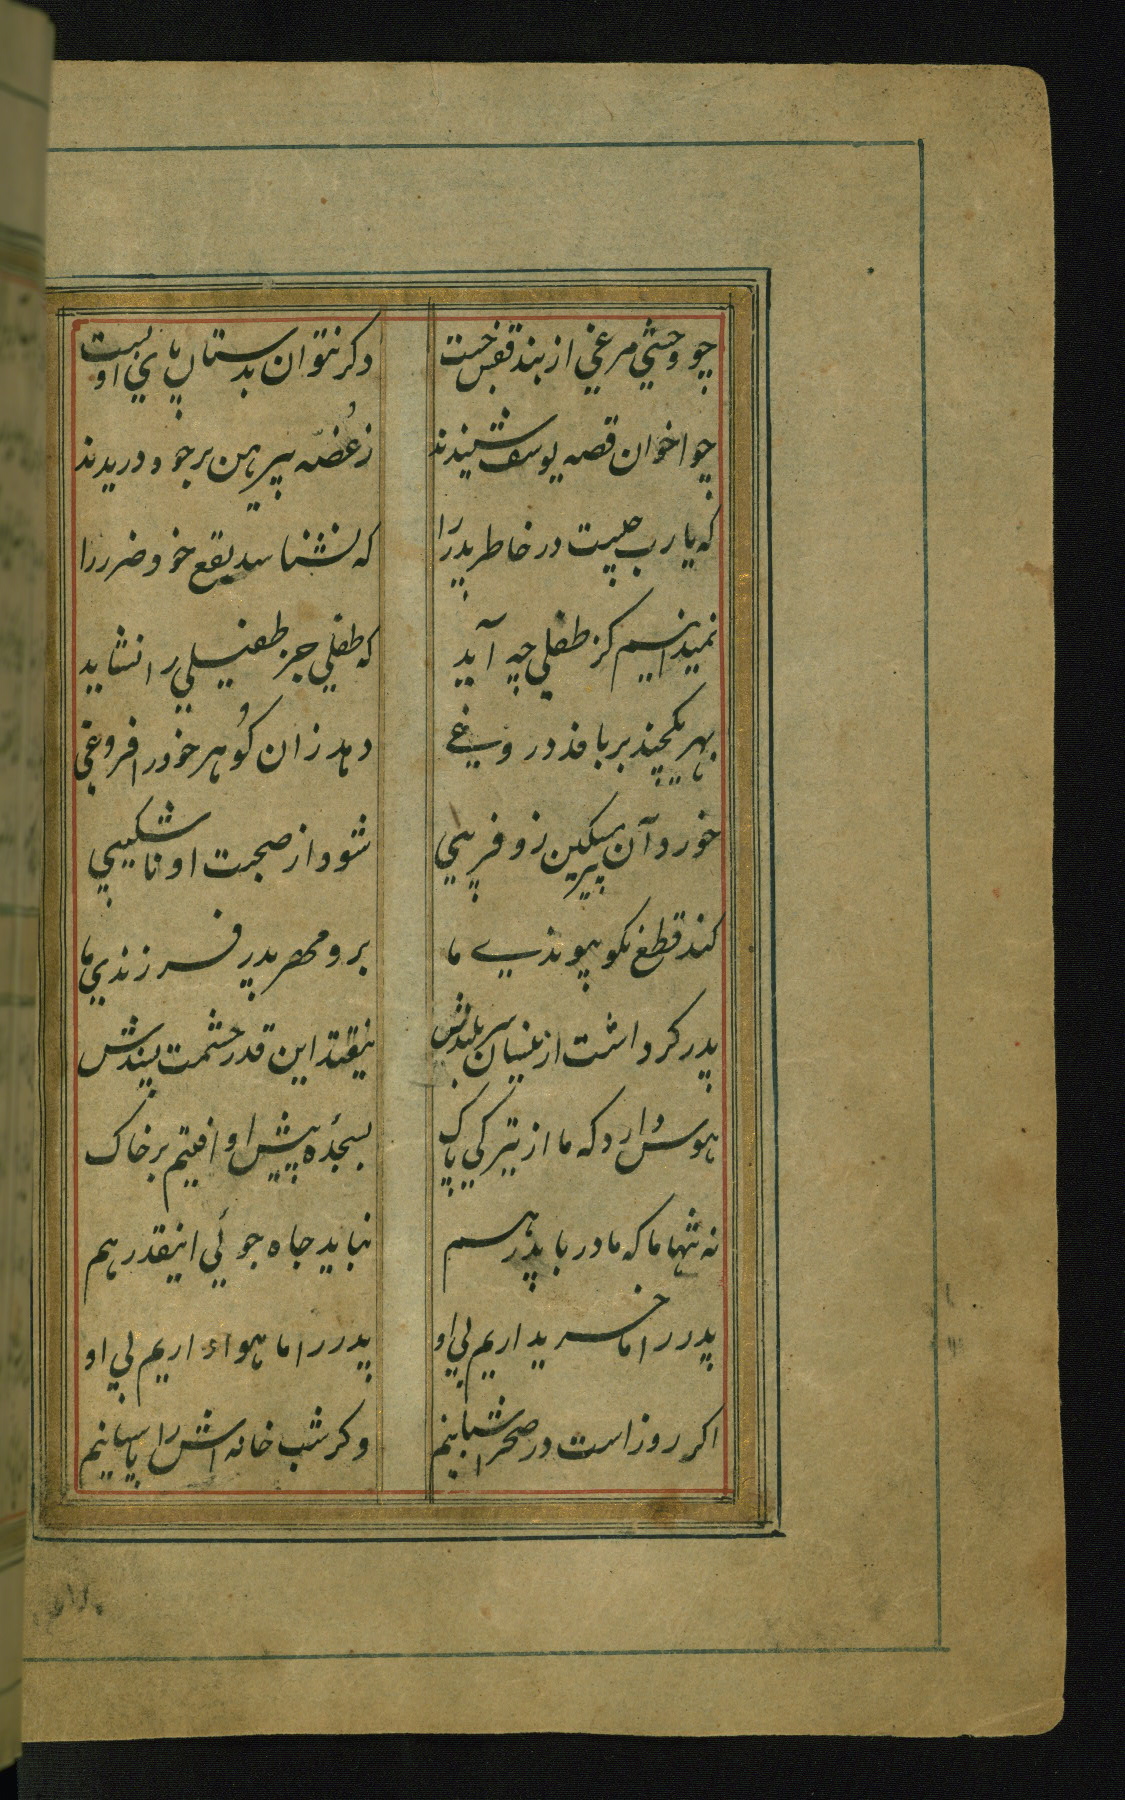 چو وحشي مرغي از بند قفس خست دكر نتوان بدستان پاي او بست
چو اخوان قصه يوسف شنيدند ز غضه پيرهن بر خود دريدند
كه يا رب چيست در خاطر پدر را كه نشناسد نفع خود ضرر را
نميدانيم كز طفلي چه آيد كه طفلي جز طفيلي را نشايد
بهر يكچند بر بافد دروغي دهد زان كوهر خود را فروغي
خورد آن پير مسكين زو فريبي شود از صحبت او ناشكيبي
كند قطع نكو پيوندي ما برو مهر پدر فرزندي ما
پدر كرد اشت از ينسان سر بلندش نيفتد اين قدر حشمت پسندش
هوس دارد كه ما از تيركي پاك بسجده پيش او افتيم بر خاك
نه تنها ما كه مادر با پدر هم نبايد جاه جوئي اينقدر هم
پدر را ما خريداريم ني او پدر را ما هواداريم ني او
اكر روز است در صحرا شبانيم وكر شب خانه اش را پاسبانيم